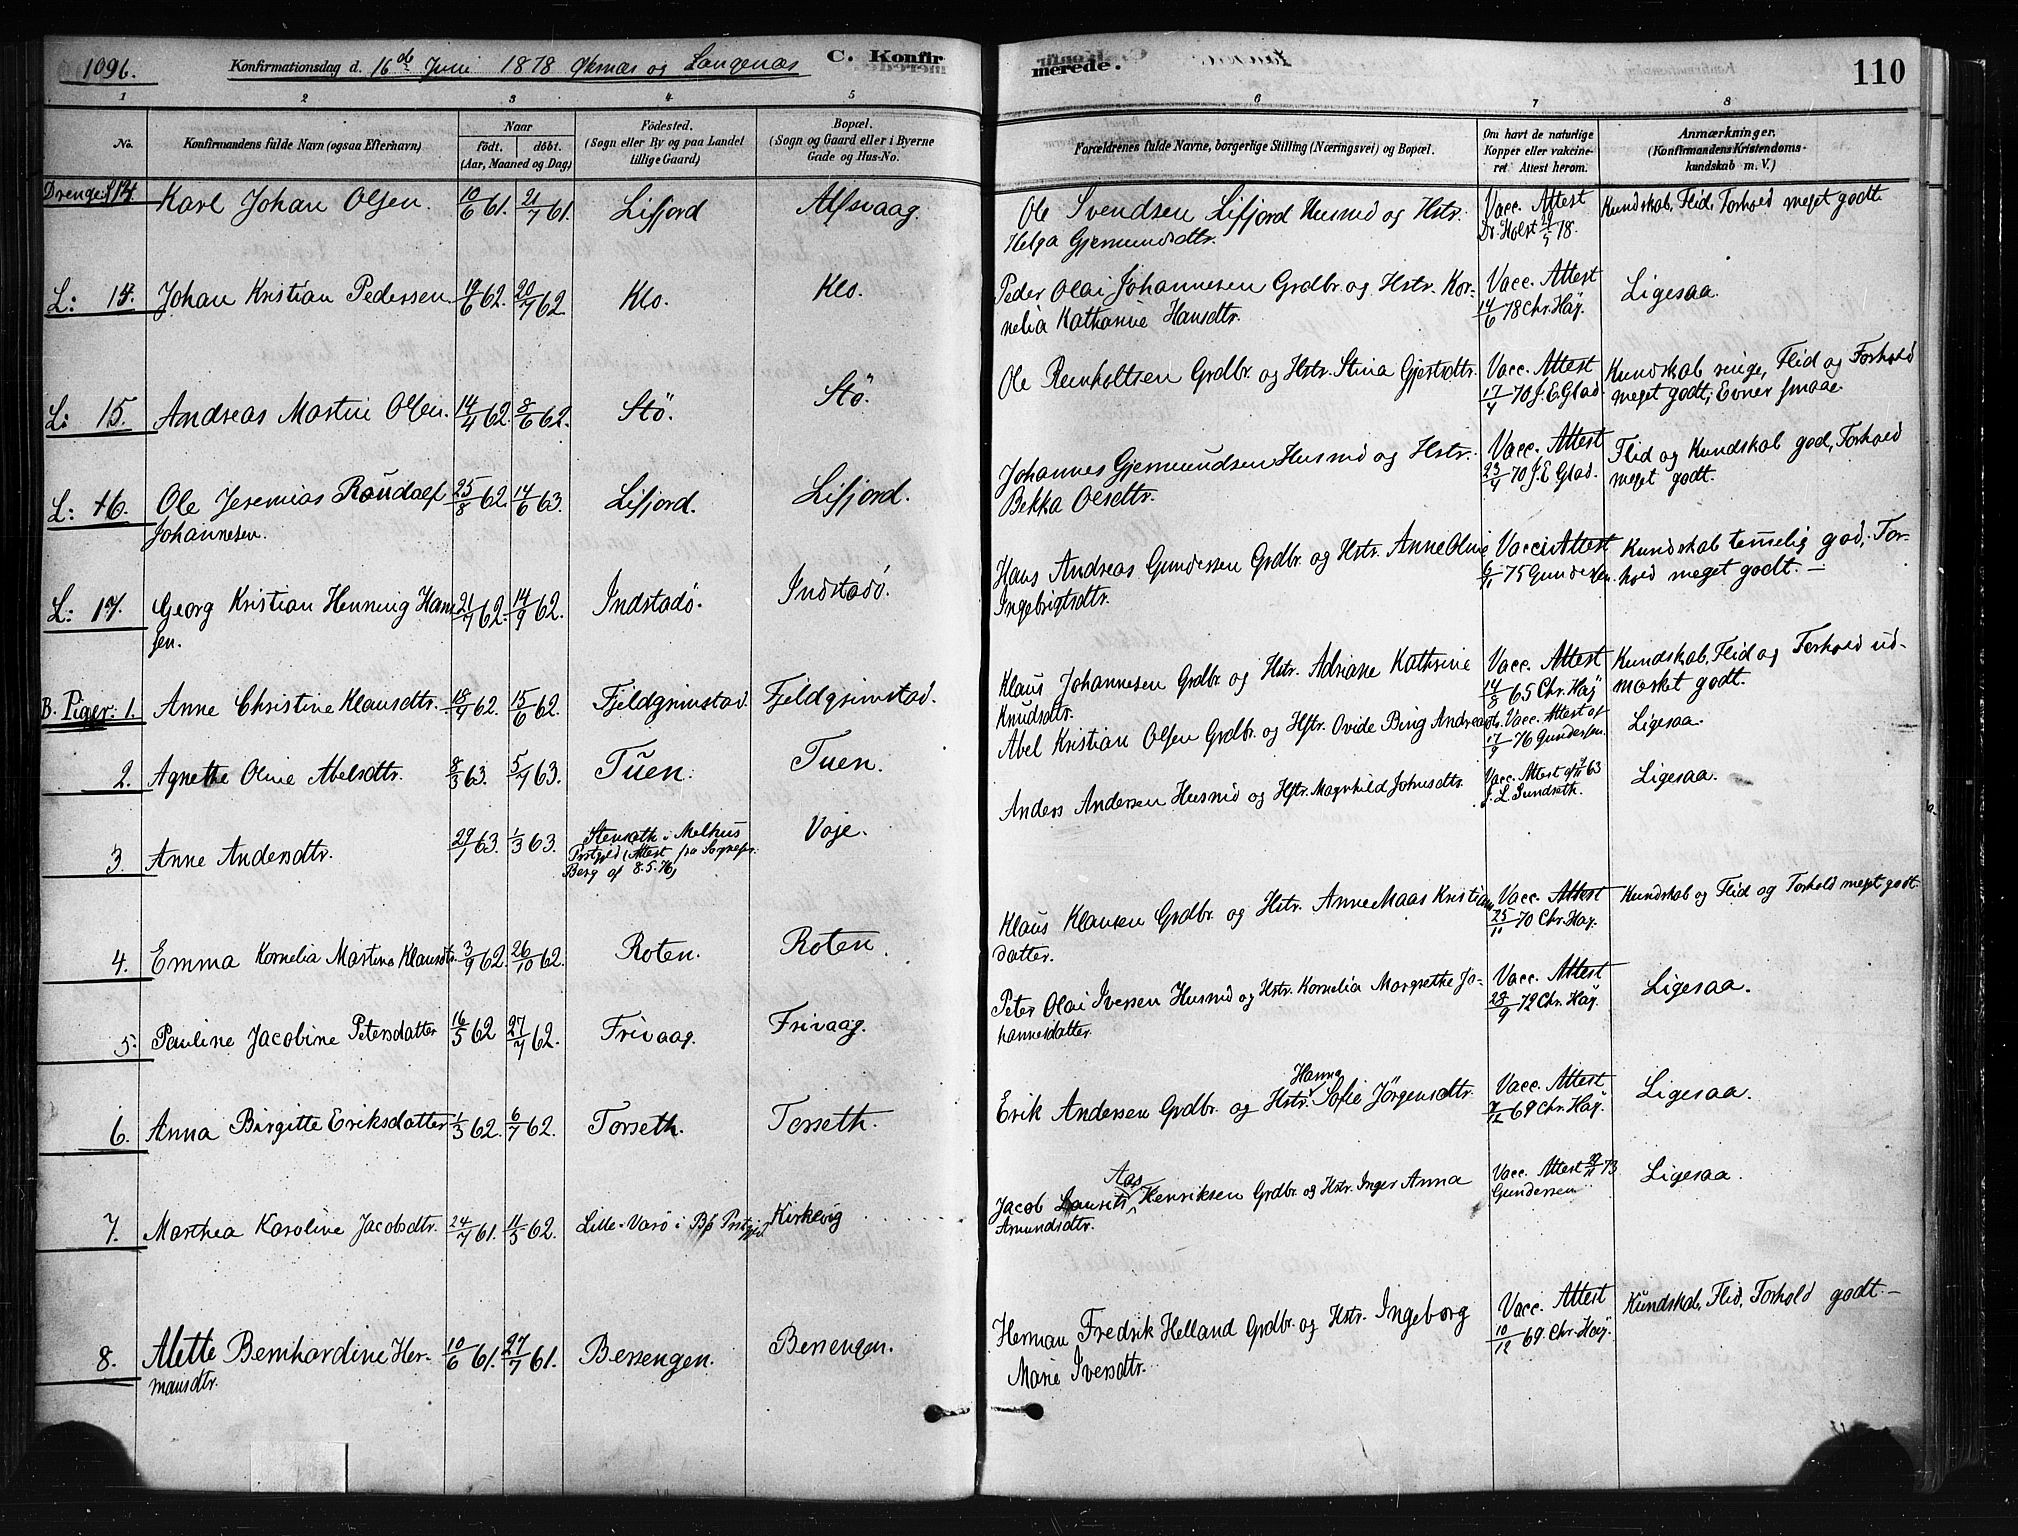 1096.
Konfirmationsdag d. 16de Juni 1878 Øksnæs og Langenæs C. Konfir-
merede. 110
1 2 3 4 5 6 7 8
No.
Konfirmandens fulde Navn (ogsaa Efternavn)
Naar
født. døbt.
(Aar, Maaned og Dag)
Fødested.
(Sogn eller By og paa Landet
tillige Gaard)
Bopæl.
(Sogn og Gaard eller i Byerne
Gade og Hus-No.
Forældrenes fulde Navne, borgerlige Stilling (Næringsvei) og Bopæl.
Om havt de naturlige
Kopper eller vakcine-
ret Attest herom.
Anmærkninger.
(Konfirmandens Kristendoms-
kundskab m. V.)
Drenge: Karl Johan Olsen. 10/6 61. 21/7 61. Lifjord Alfsvaag.
Ole Svendsen Lifjord Husmd og Hstr. Vacc. Attest Kundskab, Flid, Forhold meget godt.
Helga Gjermundsdtr. Dr. Holst
L: 14. Johan Kristian Pedersen 19/6 62. 20/7 62 Klo. Klo.
Peder Olai Johannesen Grdbr. og Hstr. Kor- Vacc. Attest Ligesaa.
nelia Kathanie Hansdtr. 14/6 78 Chr. Høy.
L: 15. Andreas Martin Olsen. 14/4 62. 8/6 62. Stö. Stö.
Ole Reinholtsen Grdbr. og Hstr. Stina Gjertsdtr. Vacc. Attest Kundskab ringe, Flid og Forhold
17/4 70 J. E. Glad. meget godt; Evner smaae.
L: 16. Ole Jeremias Raudolf 25/8 62. 14/6 63. Lifjord. Lifjord.
Johannesen.
Johannes Gjermundsen Husmd og Hstr. Vacc. Attest Flid og Kundskab god, Forhold
Bekka Olesdtr. 23/4 70 J. E. Glad. meget godt.
L: 17. Georg Kristian Henning Han- 21/7 62. 14/9 62. Indstadø. Indstadø.
sen.
Hans Andreas Gundersen Grdbr. og Hstr. Anne Oline Vacc. Attest Kundskab temmelig god, For-
Ingebrigtsdtr. 6/11 75 Gundersen. hold meget godt. —
B. Piger: 1. Anne Christine Klausdtr. 18/4 62. 15/6 62. Fjeldgrimstad. Fjeldgrimstad.
Klaus Johannesen Grdbr. og Hstr. Adriane Kathrine Vacc. Attest Kundskab, Flid og Forhold ud-
Knudsdtr. 14/8 65 Chr. Høy mærket godt.
2. Agnethe Oline Abelsdtr. 8/3 63. 5/7 63. Tuen. Tuen.
Abel Kristian Olsen Grdbr. og Hstr. Ovide Bing Andreasdtr. Vacc. Attest af Ligesaa.
17/9 76 Gundersen.
3. Anne Andersdtr. 29/1 63. 1/3 63. Stensæth i Melhus Voje.
Prstgjeld (Attest fra Sognepr.
Berg af 8.5.76)
Anders Andersen Husmd og Hstr. Magnhild Johnsdtr. Vacc. Attest 63 Ligesaa.
J. L. Sundseth.
4. Emma Kornelia Martine Klausdtr. 3/9 62. 26/10 62. Roten. Roten.
Klaus Klausen Grdbr. og Hstr. Anne Maas Kristians- Vacc. Attest Kundskab og Flid og Forhold meget godt.
datter. 25/11 70 Chr. Høy.
5. Pauline Jacobine Petersdatter 16/5 62 27/7 62. Frivaag. Frivaag.
Peter Olai Iversen Husmd og Hstr. Kornelia Margrethe Jo- Vacc. Attest Ligesaa.
hannesdatter. 28/9 72 Chr. Høy.
6. Anna Birgitte Eriksdatter 1/5 62. 6/7 62. Torseth. Torseth.
Erik Andersen Grdbr. og Hstr. Hanna Sofie Jörgensdtr. Vacc. Attest Ligesaa.
7/12 69 Chr. Høy.
7. Marthea Karoline Jacobsdtr. 24/7 61. 11/5 62. Lille-Varø i Bø Prstgjld. Kirkevig
Jacob Lauritz Aas Henriksen Grdbr. og Hstr. Inger Anna Vacc. Attest 73 Ligesaa.
Amundsdtr. Gundersen
8. Alette Bernhardine Her- 10/6 61. 27/7 61. Bersengen. Bersengen.
mansdtr.
Herman Fredrik Helland Grdbr. og Hstr. Ingeborg Vacc. Attest Kundskab, Flid, Forhold godt. —
Marie Iversdtr. 10/12 69. Chr. Høy.